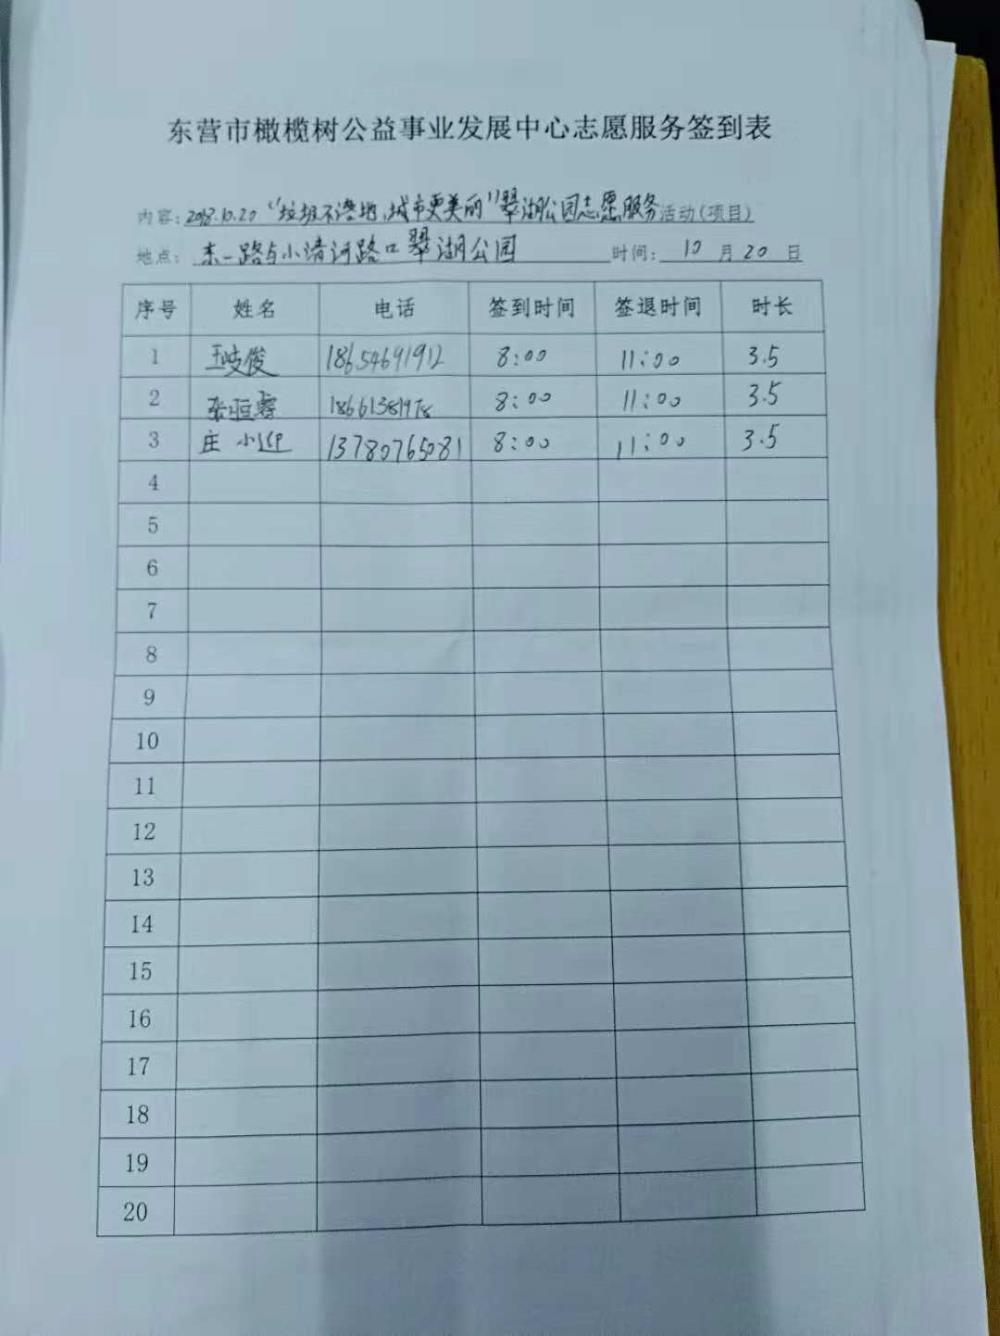 东营市橄榄树公益事业发展中心志愿服务签到表
内容：2018.10.20 "垃圾不落地，城市更美丽"翠湖公园志愿服务活动（项目）
地点：东一路与小清河路口翠湖公园 时间：10月20日
序号 姓名 电话 签到时间 签退时间 时长
1 王岐俊 18654691912 8:00 11:00 3.5
2 张恒 8:00 11:00 3.5
3 庄小 13780765081 8:00 11:00 3.5
4
5
6
7
8
9
10
11
12
13
14
15
16
17
18
19
20